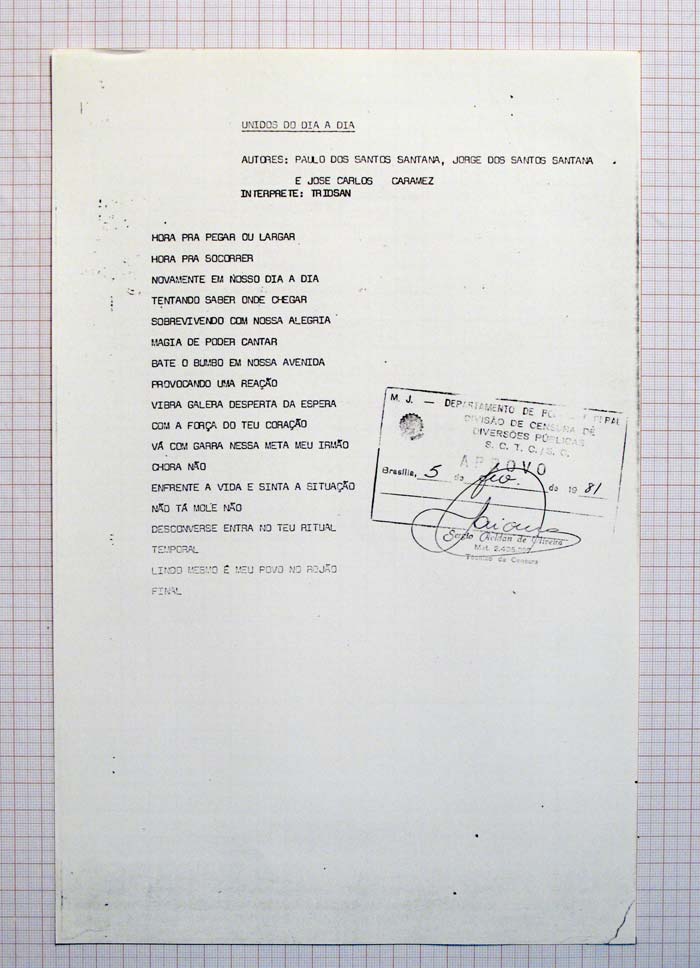 UNIDOS DO DIA A DIA
AUTORES: PAULO DOS SANTOS SANTANA, JORGE DOS SANTOS SANTANA
E JOSE CARLOS CARAMEZ
INTERPRETE: TRIDSAN
HORA PRA PEGAR OU LARGAR
HORA PRA SOCORRER
NOVAMENTE EM NOSSO DIA A DIA
TENTANDO SABER ONDE CHEGAR
SOBREVIVENDO COM NOSSA ALEGRIA
MAGIA DE PODER CANTAR
BATE O BUMBO EM NOSSA AVENIDA
PROVOCANDO UMA REAÇÃO
VIBRA GALERA DESPERTA DA ESPERA
COM A FORÇA DO TEU CORAÇÃO
VÁ COM GARRA NESSA META MEU IRMÃO
CHORA NÃO
ENFRENTE A VIDA E SINTA A SITUAÇÃO
NÃO TÁ MOLE NÃO
DESCONVERSE ENTRA NO TEU RITUAL
TEMPORAL
LINDO MESMO É MEU POVO NO ROJÃO
FINAL
M. J. — DEPARTAMENTO DE
DIVISÃO DE CENSURA DE
DIVERSÕES PÚBLICAS
S. C. T. C. / S. C.
APROVO
Brasília, 5 de de 1981
de Oliveira
Mat. 2.405.
Técnico de Censura